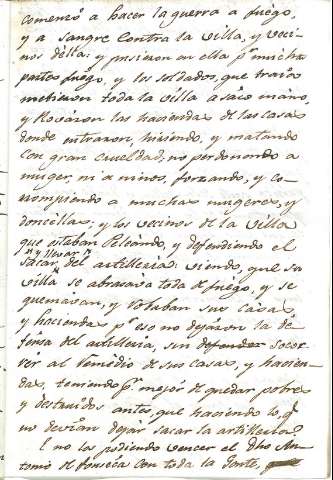 comenzó a hacer la guerra a fuego,
y a sangre contra la villa, y veci
nos della: y pusieron en ella pr mucha
partes fuego, y los soldados, que traia
metieron toda la villa a saco mano,
y Rovaron las haciendas de las casas
donde entraron, hiriendo, y matando
con gran crueldad, no perdonando a
muger, ni a ninos, forzando, y co-
rrompiendo a muchas mugeres, y
doncellas; y los vecinos de la villa
que estaban Peleando, y defendiendo el
sacar, y llevar del artilleria: viendo, que su
villa se abrasava toda de fuego, y se
quemavan, y robaban sus casas,
y haciendas pr eso no dejaron la de
fensa del artilleria, sin defender socor-
rer al remedio de sus casas, y hacien-
das, teniendo pr mejor de quedar pobres
y destruidos antes, que haciendo lo, q
no devian dejar sacar la artilleria
E no los pudiendo vencer el Dho An-
tonio de Fonseca con toda la Gente,